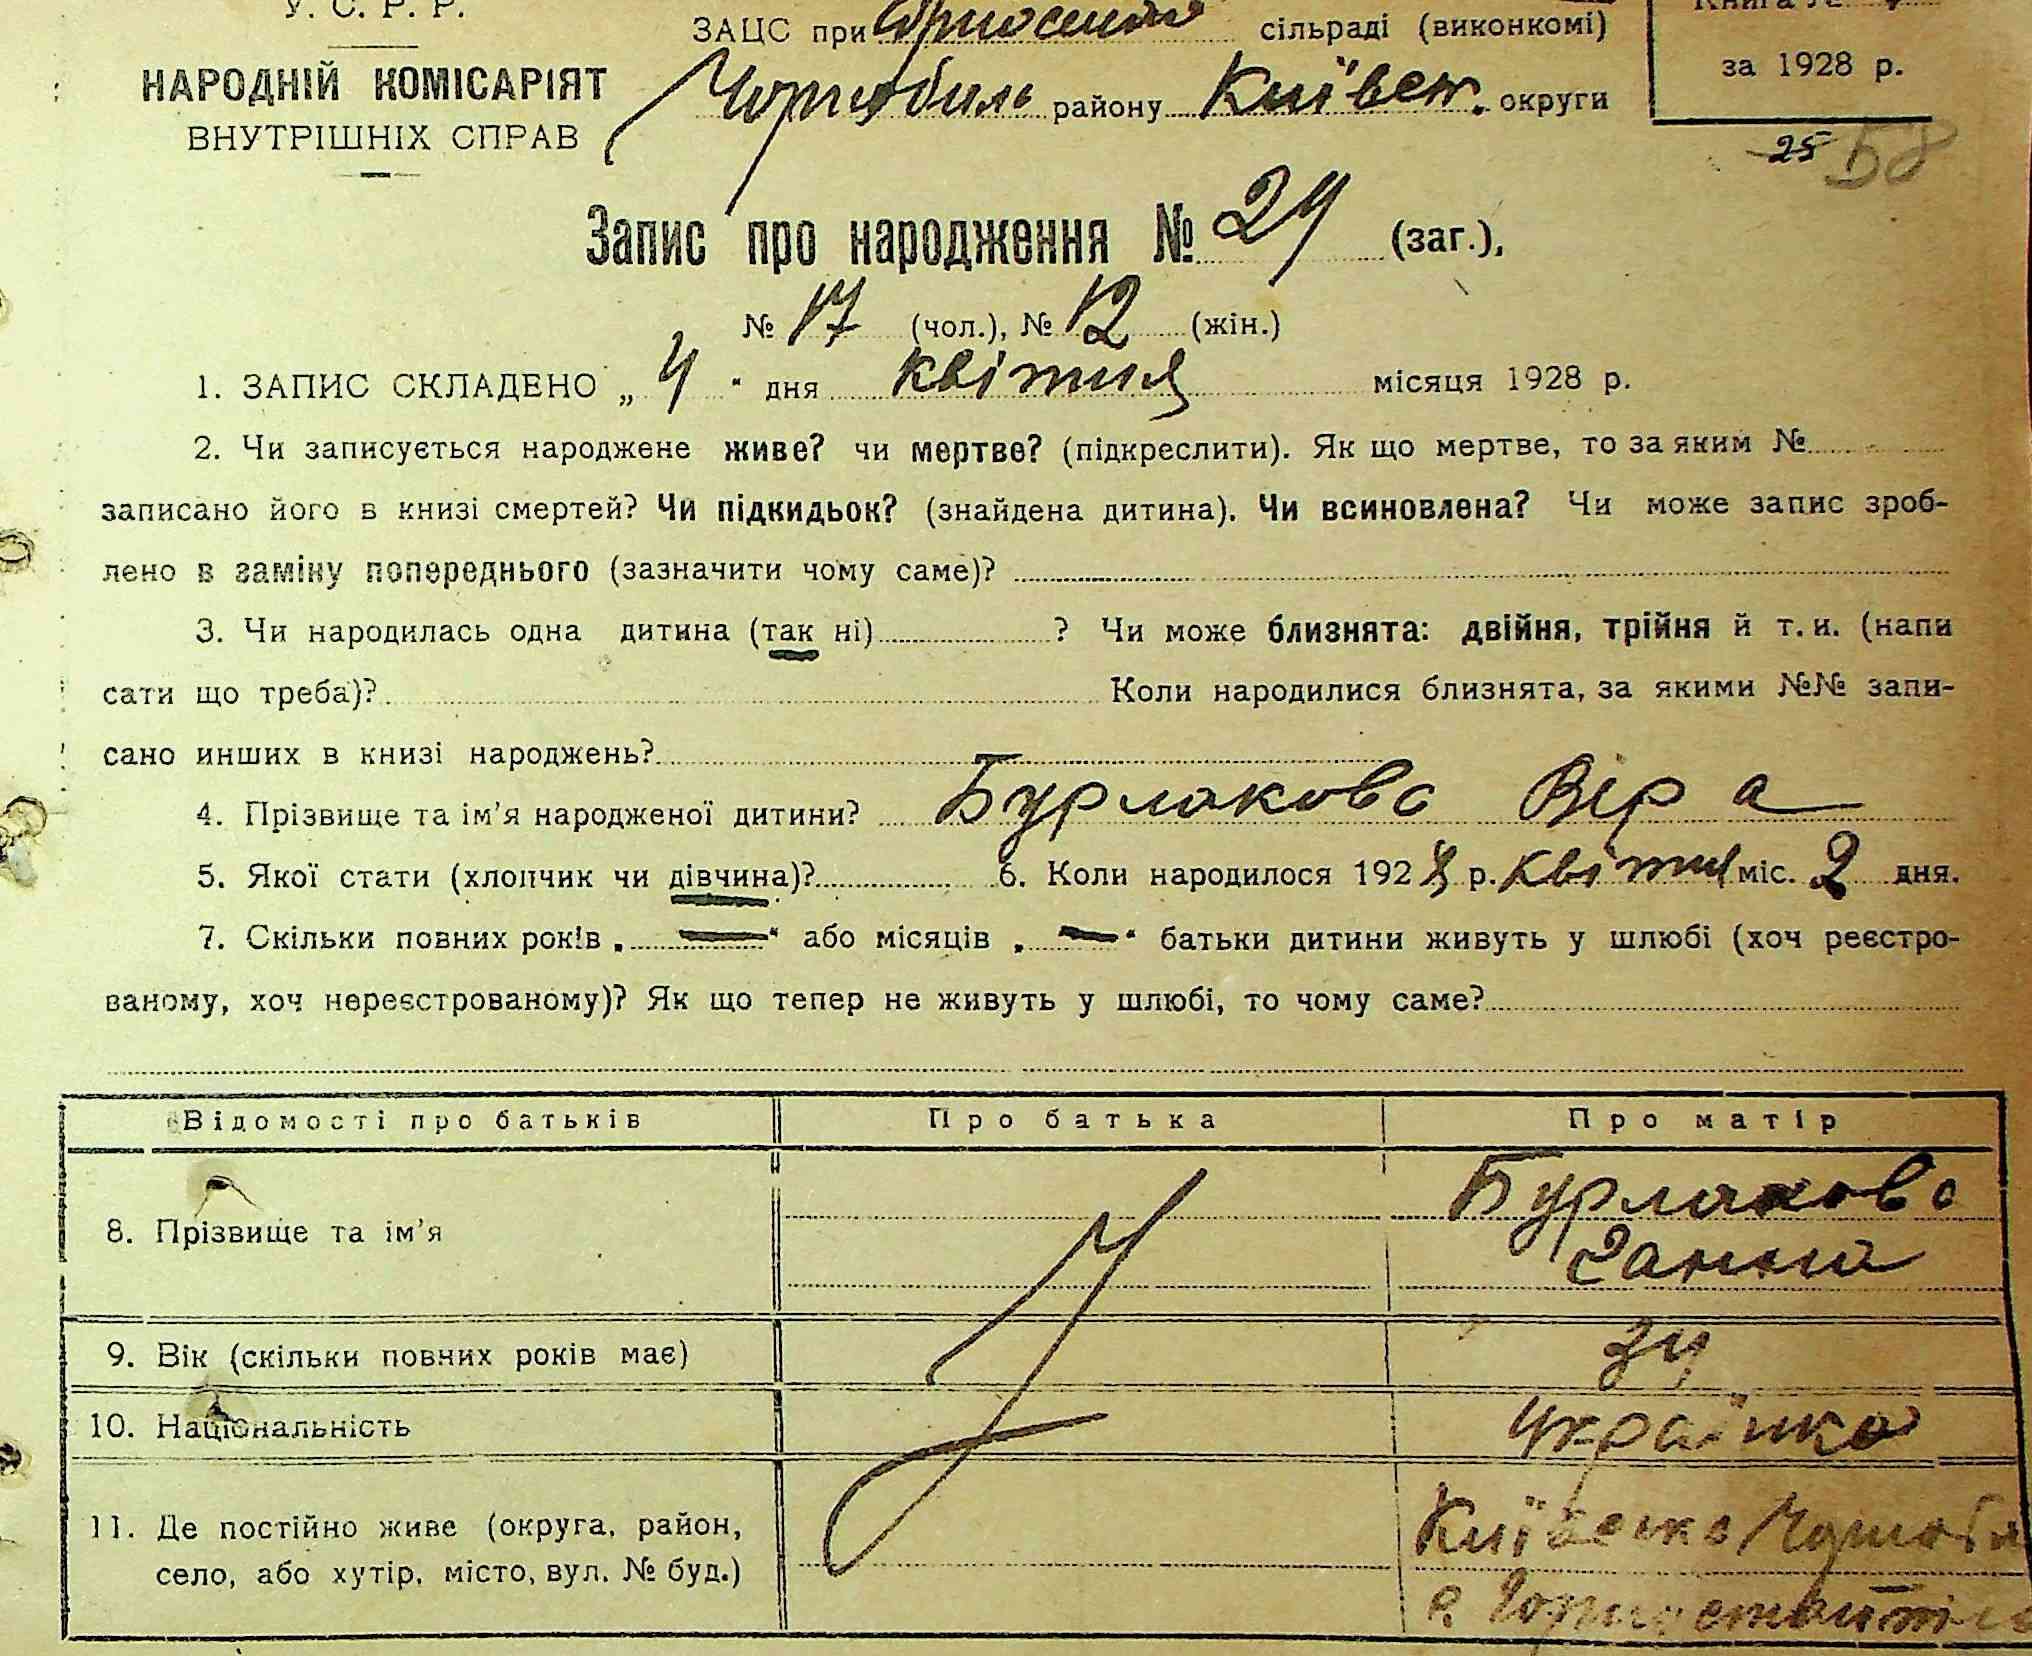 У. С. Р. Р.
ЗАЦС при сільраді (виконкомі)
за 1928 р.
НАРОДНІЙ КОМІСАРІЯТ
ВНУТРІШНІХ СПРАВ
Чорнобиль району Київськ. округи
25 58
Запис про народження № 29 (заг.),
№ 17 (чол.), № 12 (жін.)
1. ЗАПИС СКЛАДЕНО „ 4 “ дня квітня місяця 1928 р.
2. Чи записується народжене живе? чи мертве? (підкреслити). Як що мертве, то за яким №
записано його в книзі смертей? Чи підкидьок? (знайдена дитина). Чи всиновлена? Чи може запис зроб-
лено в заміну попереднього (зазначити чому саме)?
3. Чи народилась одна дитина (так ні) ? Чи може близнята: двійня, трійня й т. и. (напи
сати що треба)? Коли народилися близнята, за якими №№ запи-
сано инших в книзі народжень?
4. Прізвище та ім’я народженої дитини? Бурлакова Віра
5. Якої стати (хлопчик чи дівчина)? 6. Коли народилося 1928 р. квітня міс. 2 дня.
7. Скільки повних років „ — “ або місяців „ — “ батьки дитини живуть у шлюбі (хоч реєстро-
ваному, хоч нереєстрованому)? Як що тепер не живуть у шлюбі, то чому саме?
Відомості про батьків Про батька Про матір
8. Прізвище та ім’я Бурлакова
Ганна
9. Вік (скільки повних років має) 34
10. Національність Українка
11. Де постійно живе (округа, район, Київська Чорнобил
село, або хутір, місто, вул. № буд.) с. Горностайпіль